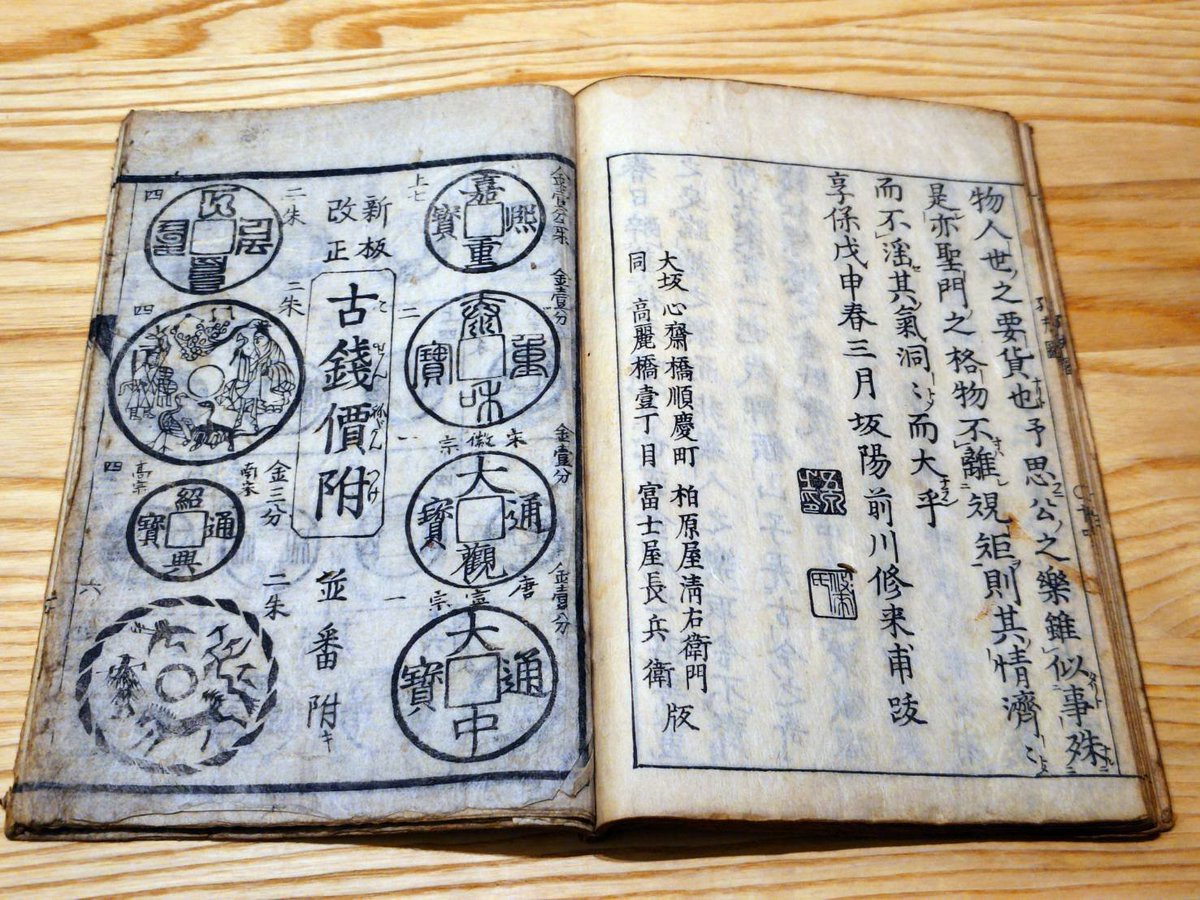 物人世ノ之要貨也予思公之樂雖似事殊
是亦聖門之格物不離規矩則其情濟〻
而不滛其氣洞〻而大乎
享保戊申春三月坂陽前川修来甫跋
大坂心齋橋順慶町 柏原屋淸右衛門
同 高麗橋壹丁目 冨士屋長兵衛 版
金壹分
上七
嘉熙重寶
金壹分
二
泰和重寶
金壹分
宋徽宗
一
大觀通寶
金壹分
唐宣宗
一
大中通寶
新板
改正
古錢價附
こせん
つけ
並番附キ
二朱
四
二朱
四
金三分
南宋
高宗
四
紹興通寶
二朱
六